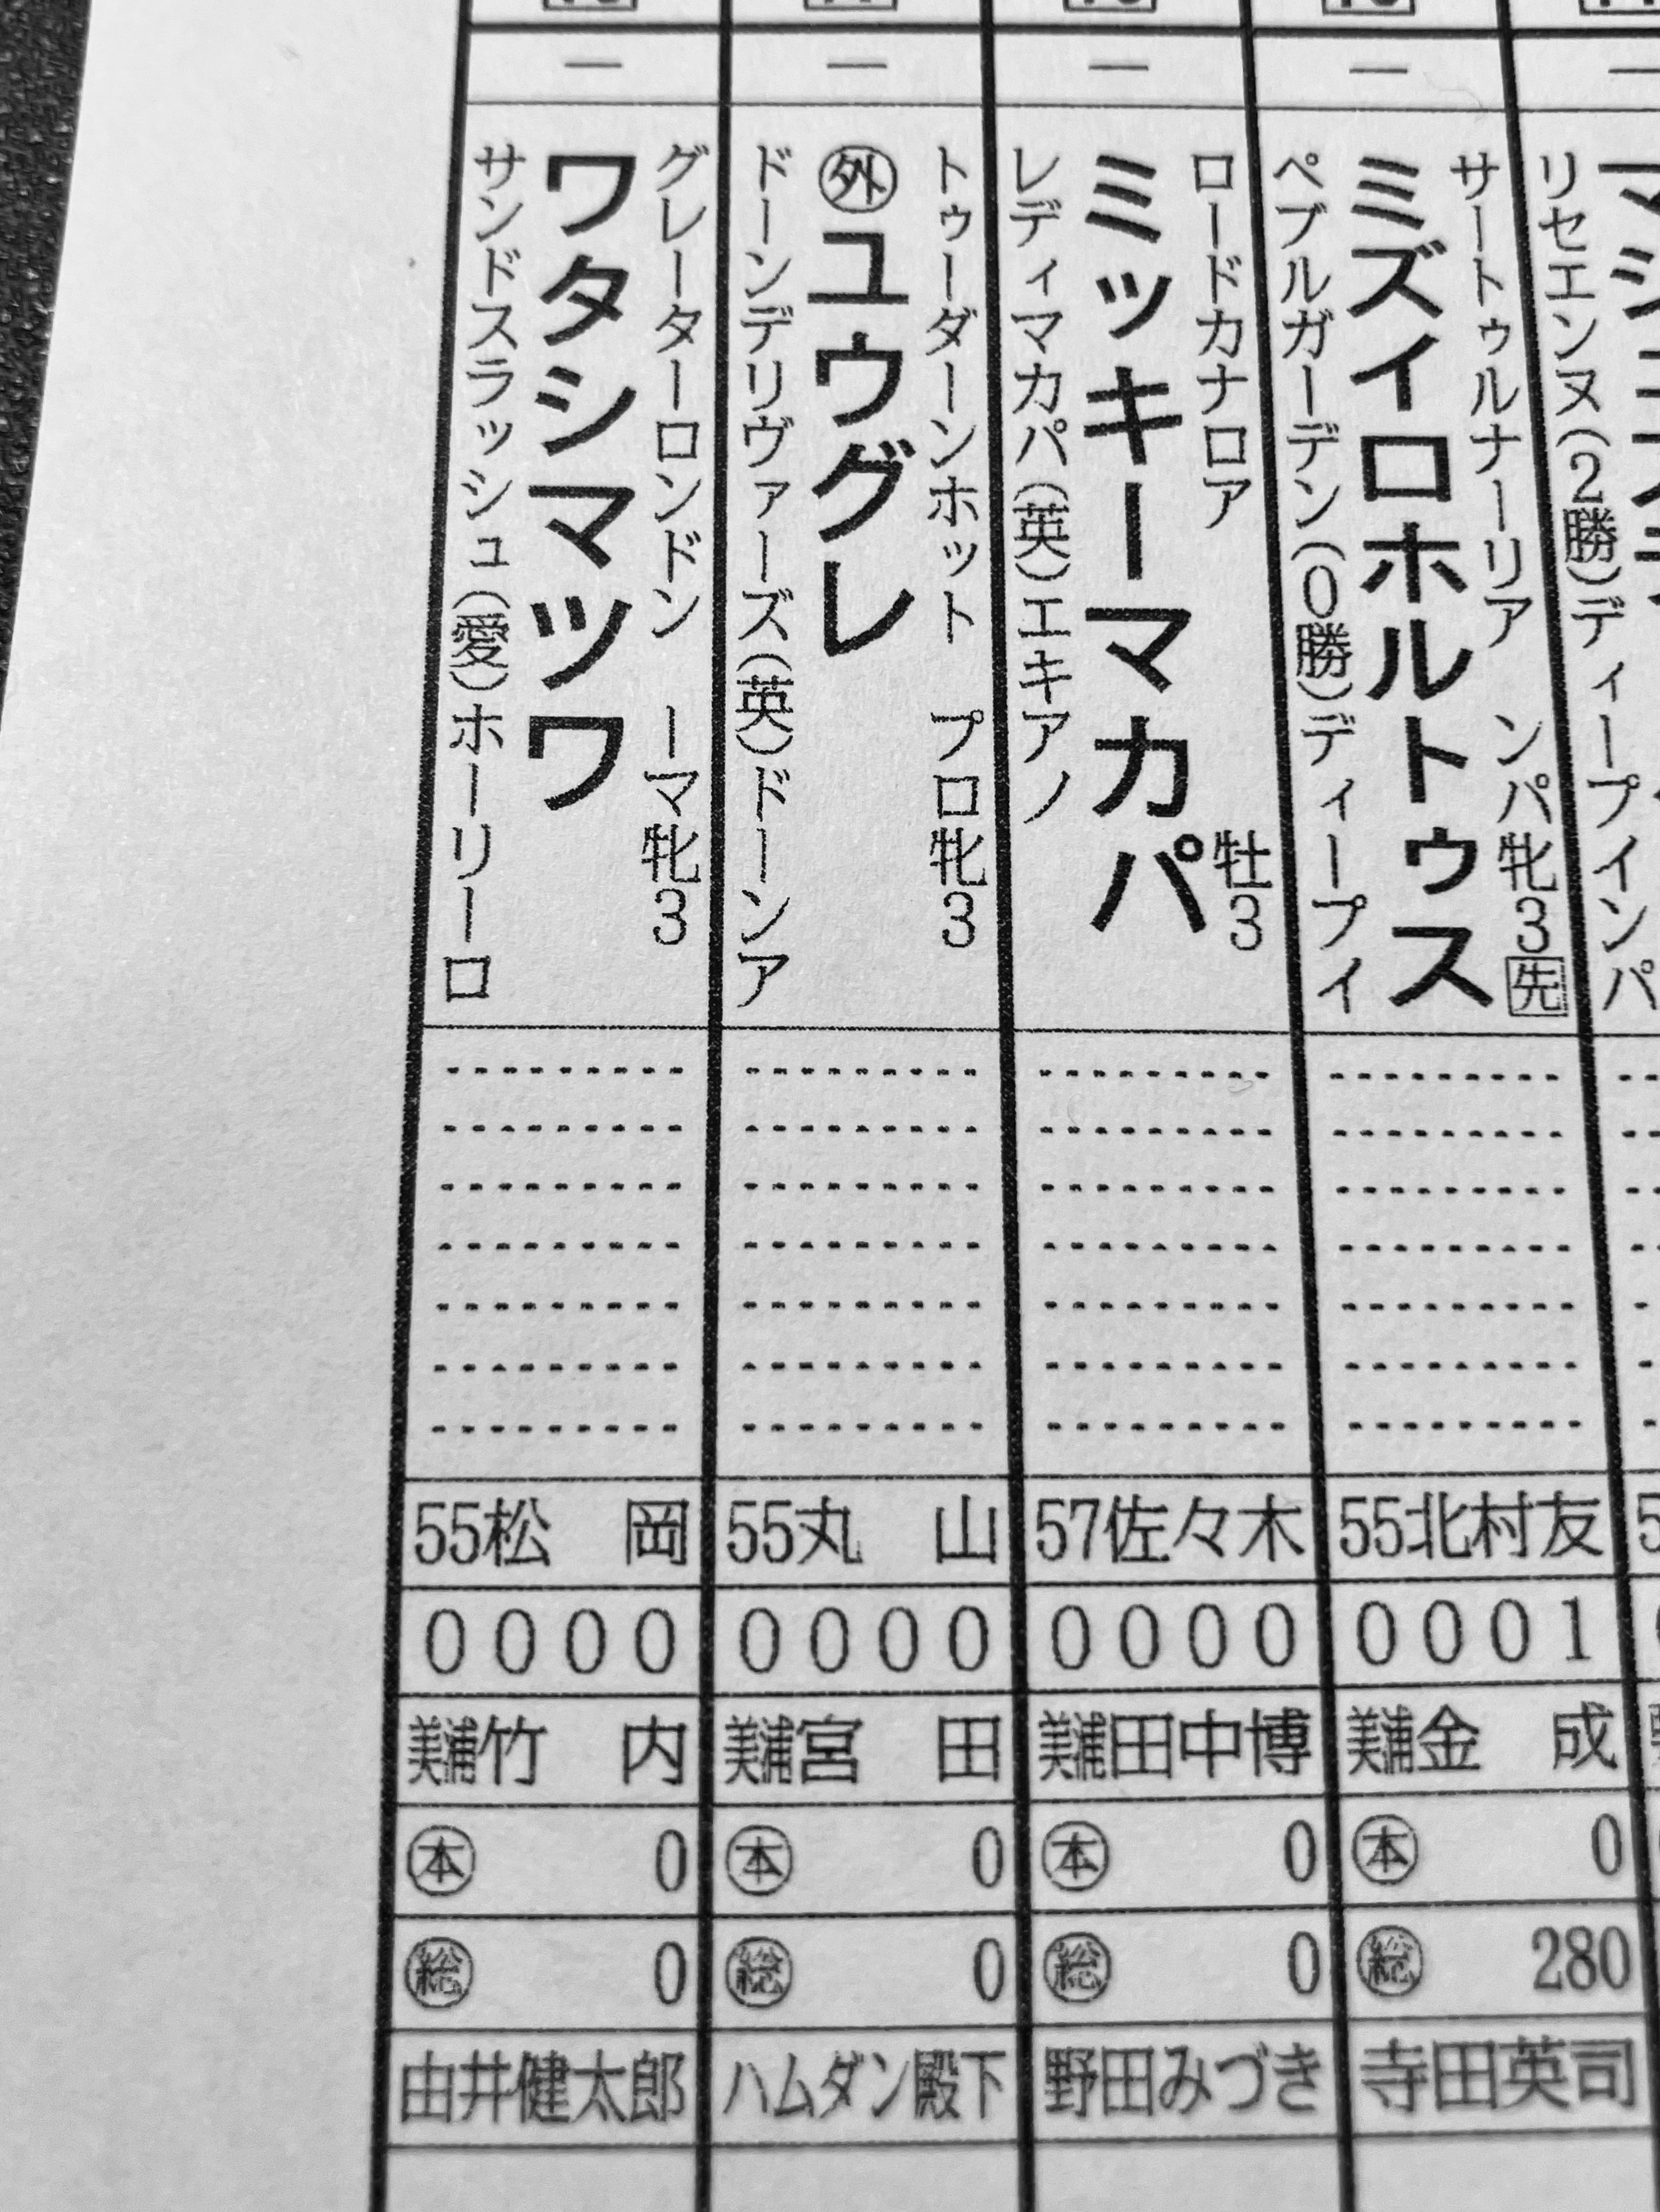 一
サートゥルナーリア
ンパ牝3先
ミズイロホルトゥス
ペブルガーデン(0勝)ディープイ
55北村友
0001
美浦金成
本 0
総 280
寺田英司
一
ロードカナロア
牡3
ミッキーマカパ
レディマカパ(英)エキアノ
57佐々木
0000
美浦田中博
本 0
総 0
野田みづき
一
トゥーダーンホット
プロ牝3
外ユウグレ
ドーンデリヴァーズ(英)ドーンア
55丸山
0000
美浦宮田
本 0
総 0
ハムダン殿下
一
グレーターロンドン
ーマ牝3
ワタシマツワ
サンドスラッシュ(愛)ホーリーロ
55松岡
0000
美浦竹内
本 0
総 0
由井健太郎
リセエンヌ(2勝)ディープインパ